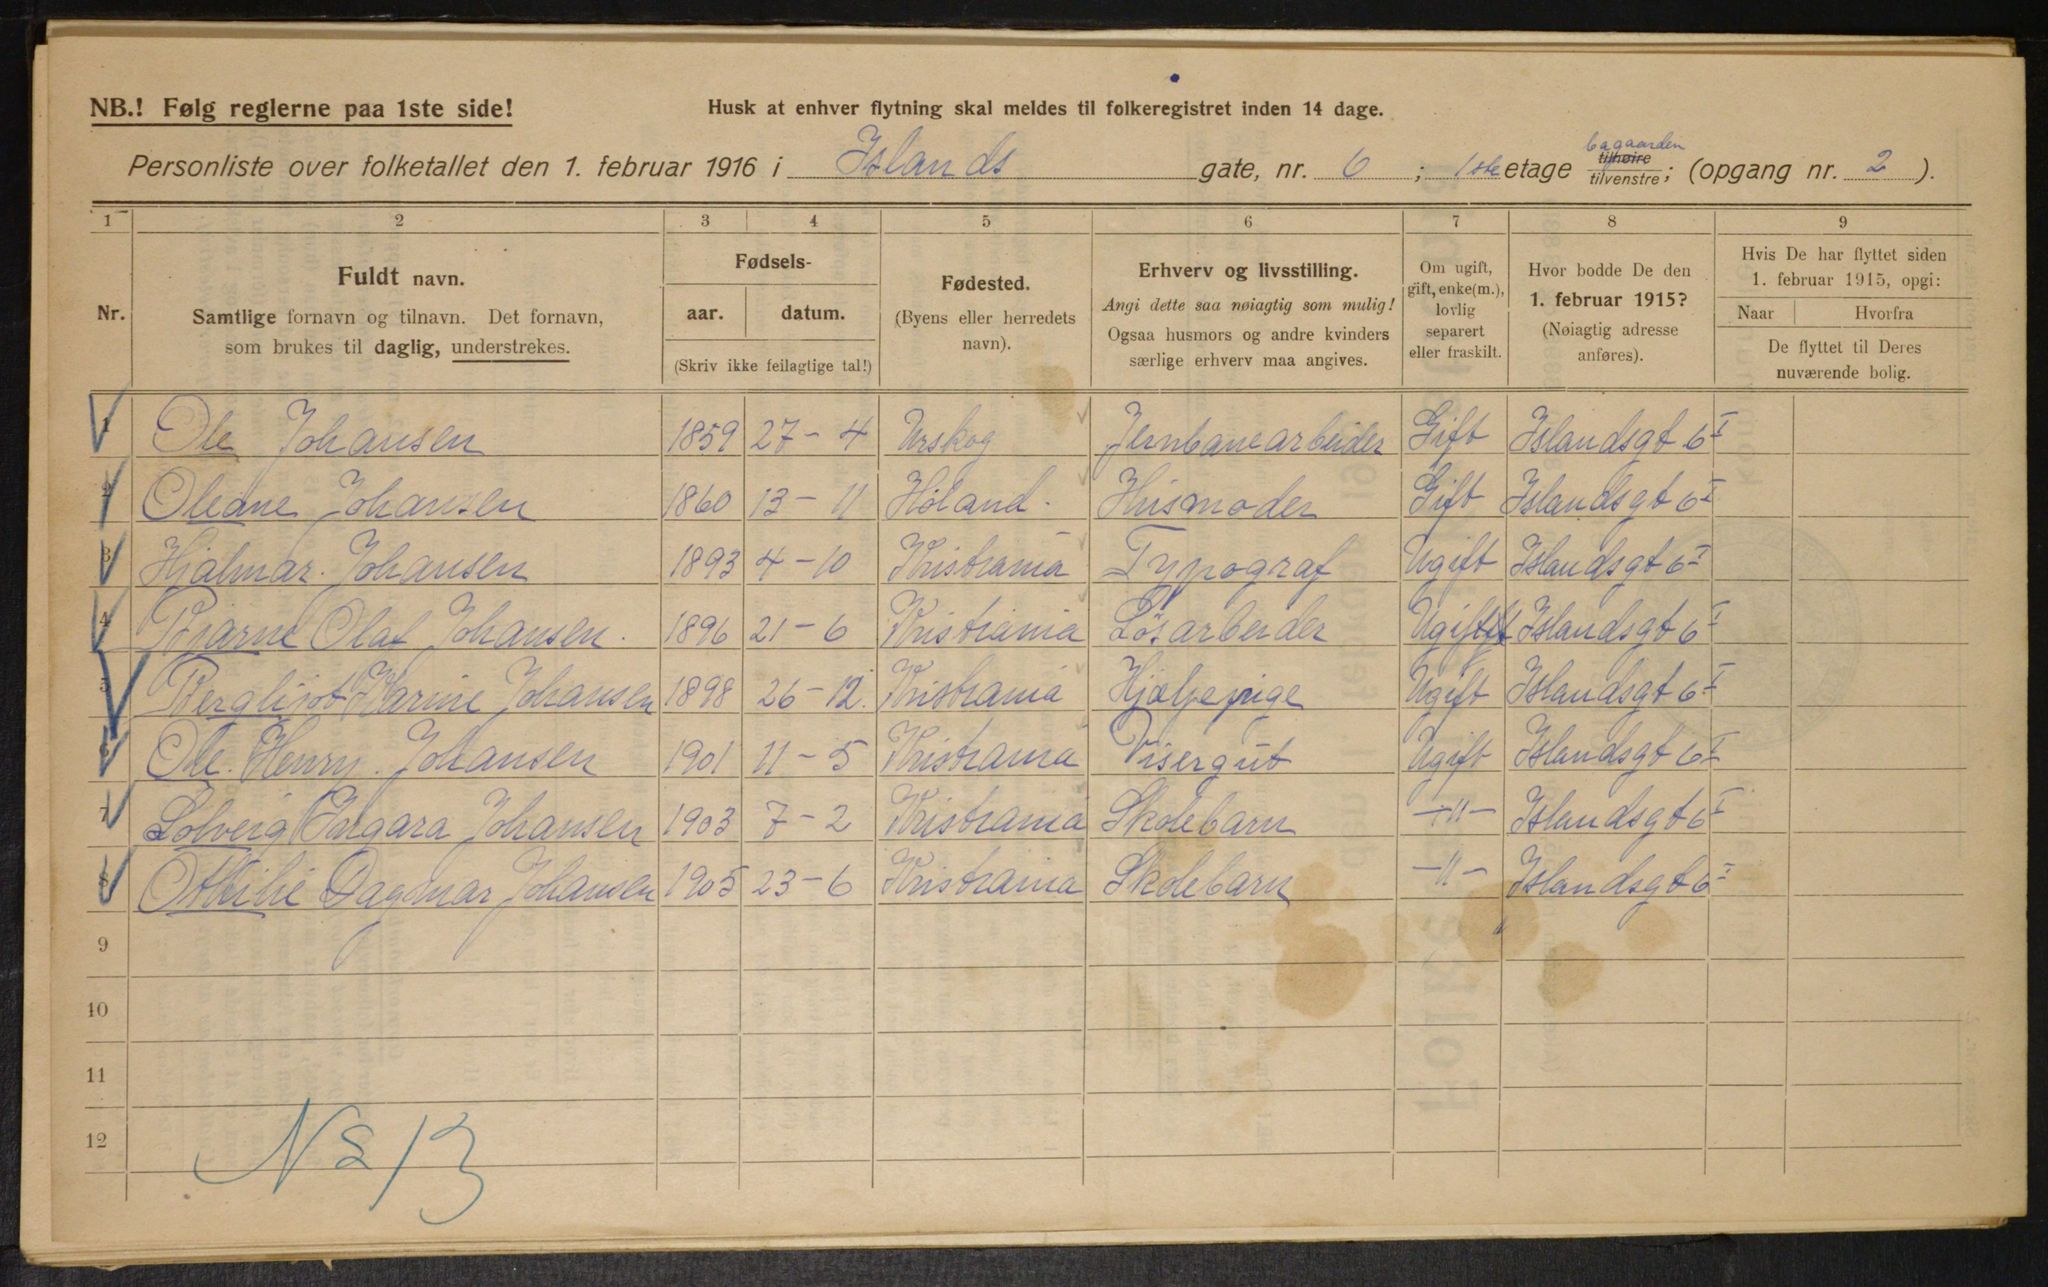 NB.! Følg reglerne paa 1ste side!
Husk at enhver flytning skal meldes til folkeregistret inden 14 dage.
Personliste over folketallet den 1. februar 1916 i Islands gate, nr. 6 ; 1ste etage bagaarden tilhøire tilvenstre; (opgang nr. 2 ).
1 2 3 4 5 6 7 8 9
Nr.
Fuldt navn.
Samtlige fornavn og tilnavn. Det fornavn,
som brukes til daglig, understrekes.
Fødsels-
aar. datum.
(Skriv ikke feilagtige tal!)
Fødested.
(Byens eller herredets
navn).
Erhverv og livsstilling.
Angi dette saa nøiagtig som mulig!
Ogsaa husmors og andre kvinders
særlige erhverv maa angives.
Om ugift,
gift, enke(m.),
lovlig
separert
eller fraskilt.
Hvor bodde De den
1. februar 1915?
(Nøiagtig adresse
anføres).
Hvis De har flyttet siden
1. februar 1915, opgi:
Naar Hvorfra
De flyttet til Deres
nuværende bolig.
1 Ole Johansen 1859 27-4 Urskog Jernbanearbeider Gift Islandsgt 6 I
2 Oleane Johansen 1860 13-11 Høland. Husmoder Gift Islandsgt 6 I
3 Hjalmar. Johansen 1893 4-10 Kristiania Typograf Ugift Islandsgt 6 I
4 Bjarne Olaf Johansen. 1896 21-6 Kristiania Løsarbeider Ugift Islandsgt 6 I
5 Bergliot Karine Johansen 1898 26-12. Kristiania Hjælpepige Ugift Islandsgt 6 I
6 Ole. Henry. Johansen 1901 11-5 Kristiania Visergut Ugift Islandsgt 6 I
7 Solveig Ingara Johansen 1903 7-2 Kristiania Skolebarn -"- Islandsgt 6 I
8 Othilie Dagmar Johansen 1905 23-6 Kristiania Skolebarn -"- Islandsgt 6 I
9
10
11
12
No 13